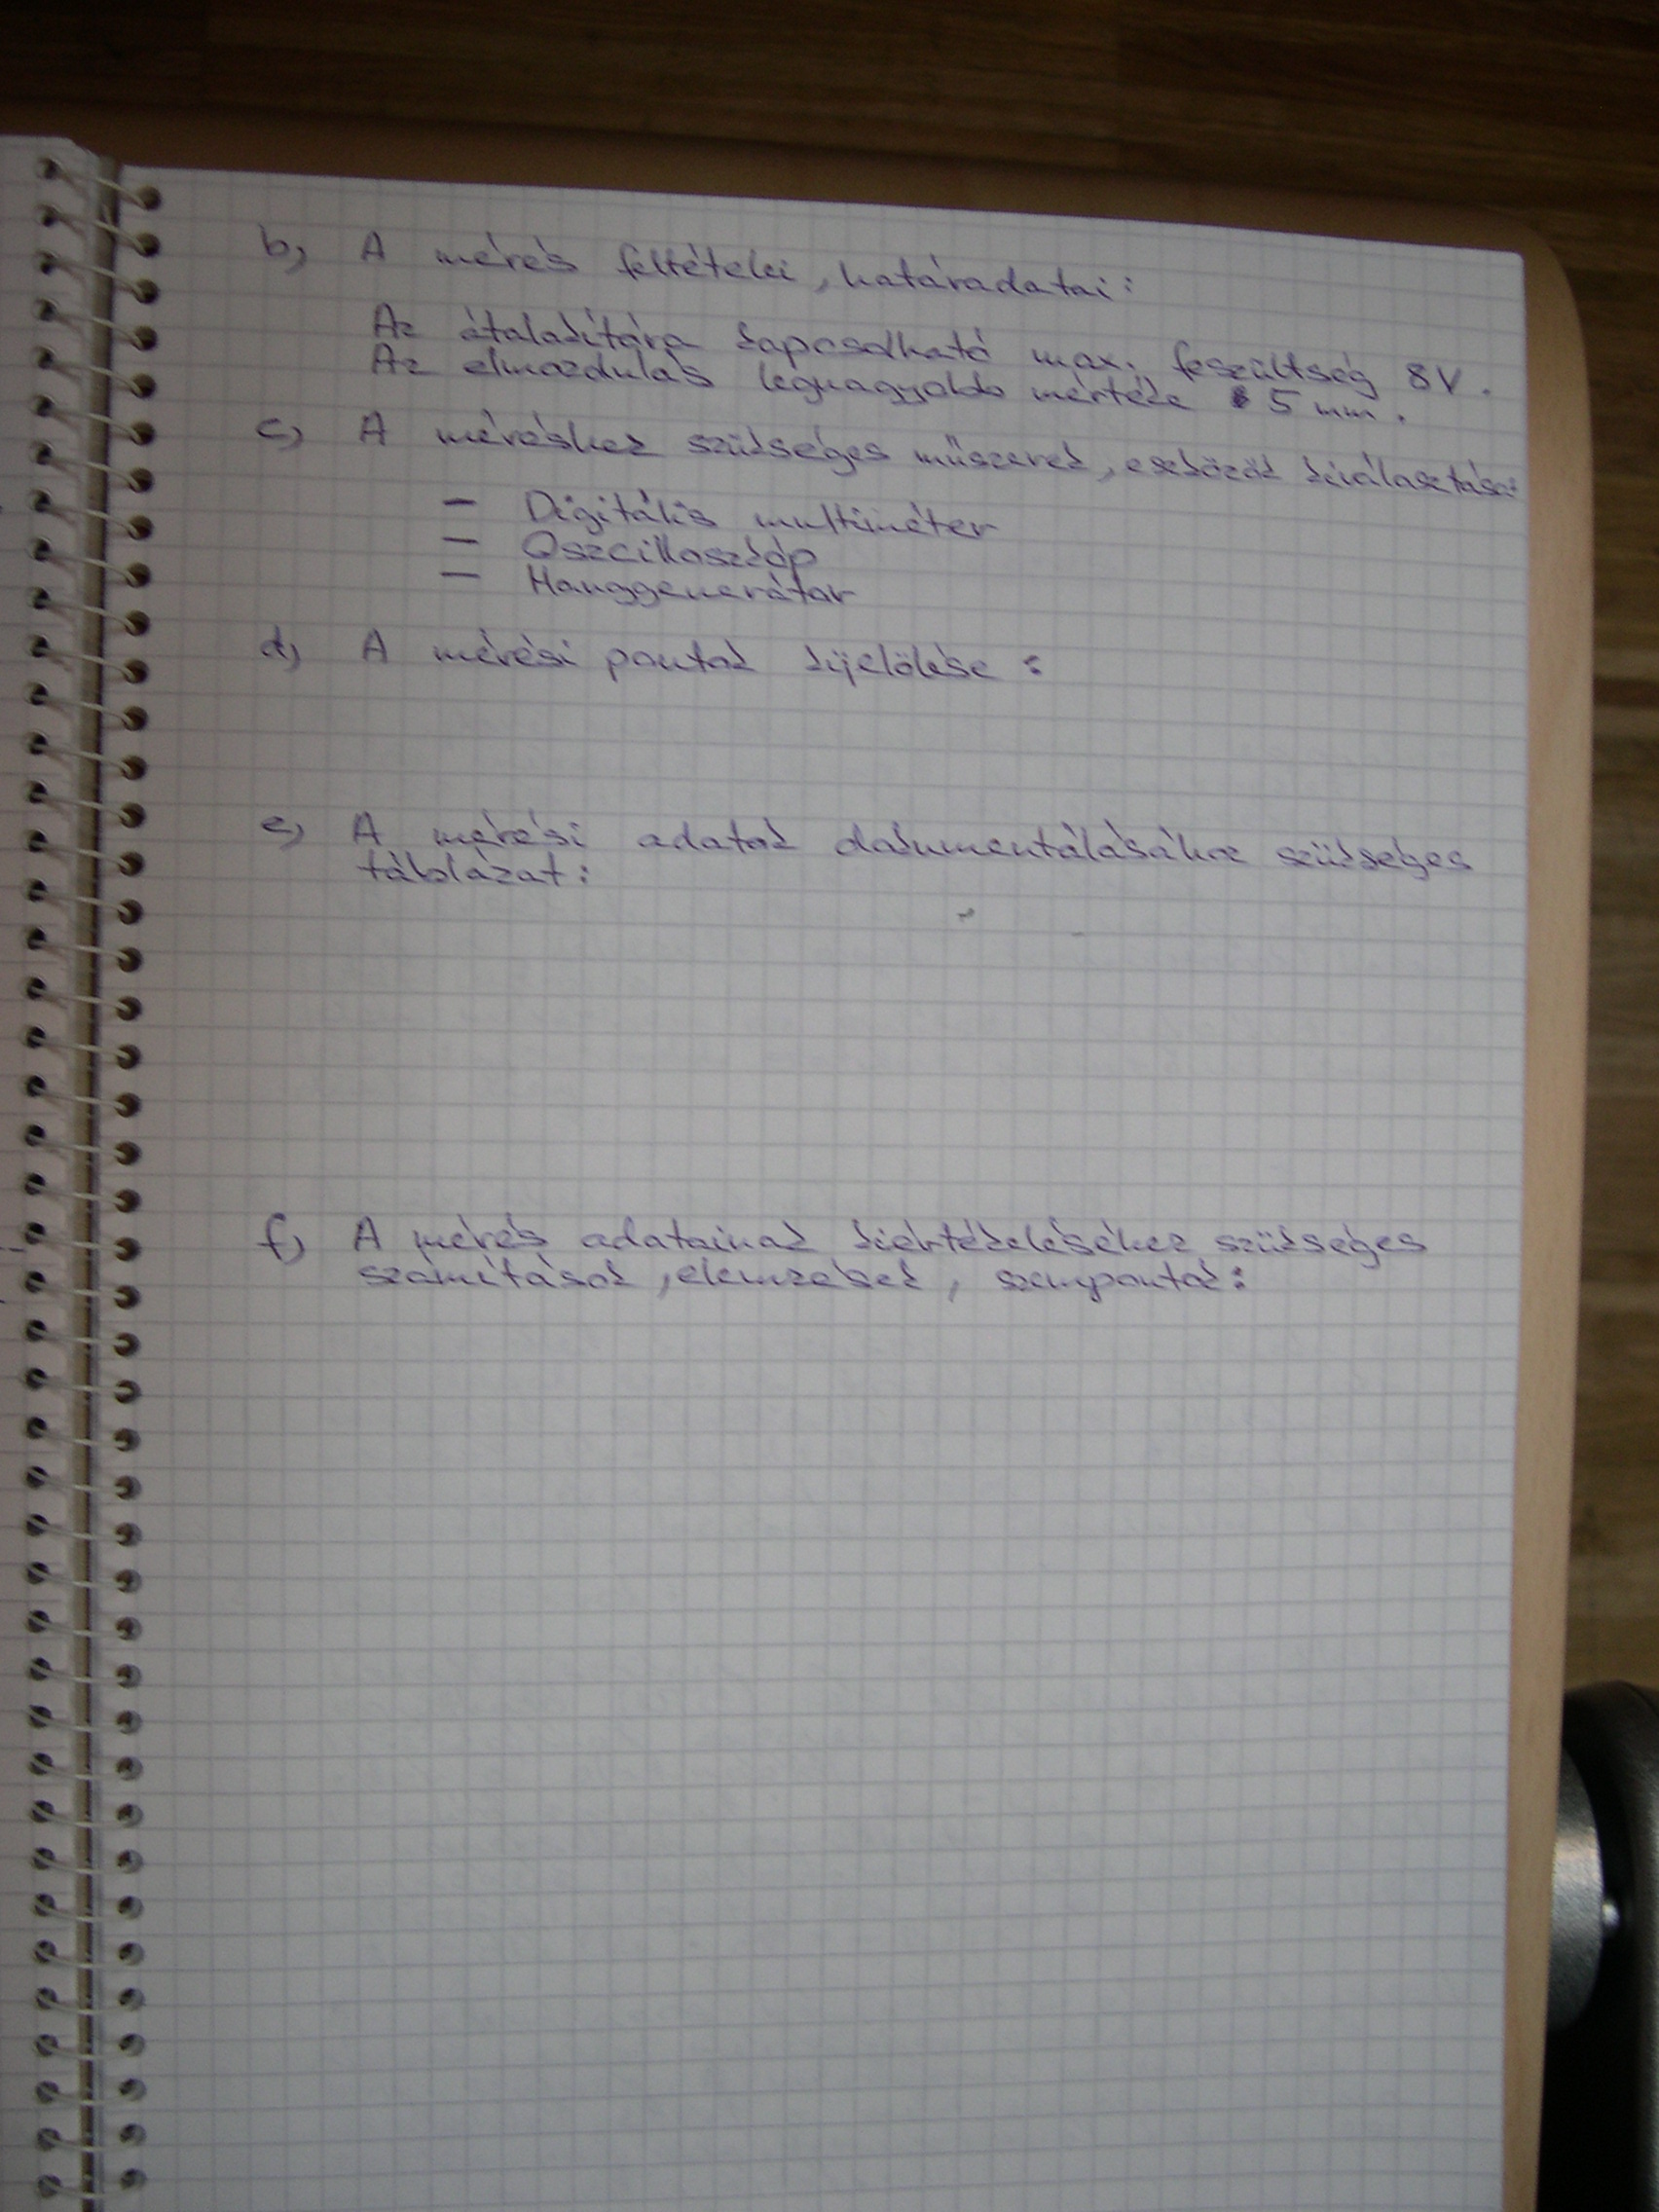 b, A mérés feltételei, határadatai:
Az átalakítóra kapcsolható max. feszültség 8V.
Az elmozdulás legnagyobb mértéke 5 mm.
c, A méréshez szükséges műszerek, eszközök kiválasztása:
– Digitális multiméter
– Oszcilloszkóp
– Hanggenerátor
d, A mérési pontok kijelölése:
e, A mérési adatok dokumentálásához szükséges
táblázat:
f, A mérés adatainak kiértékeléséhez szükséges
számítások, elemzések, szempontok: